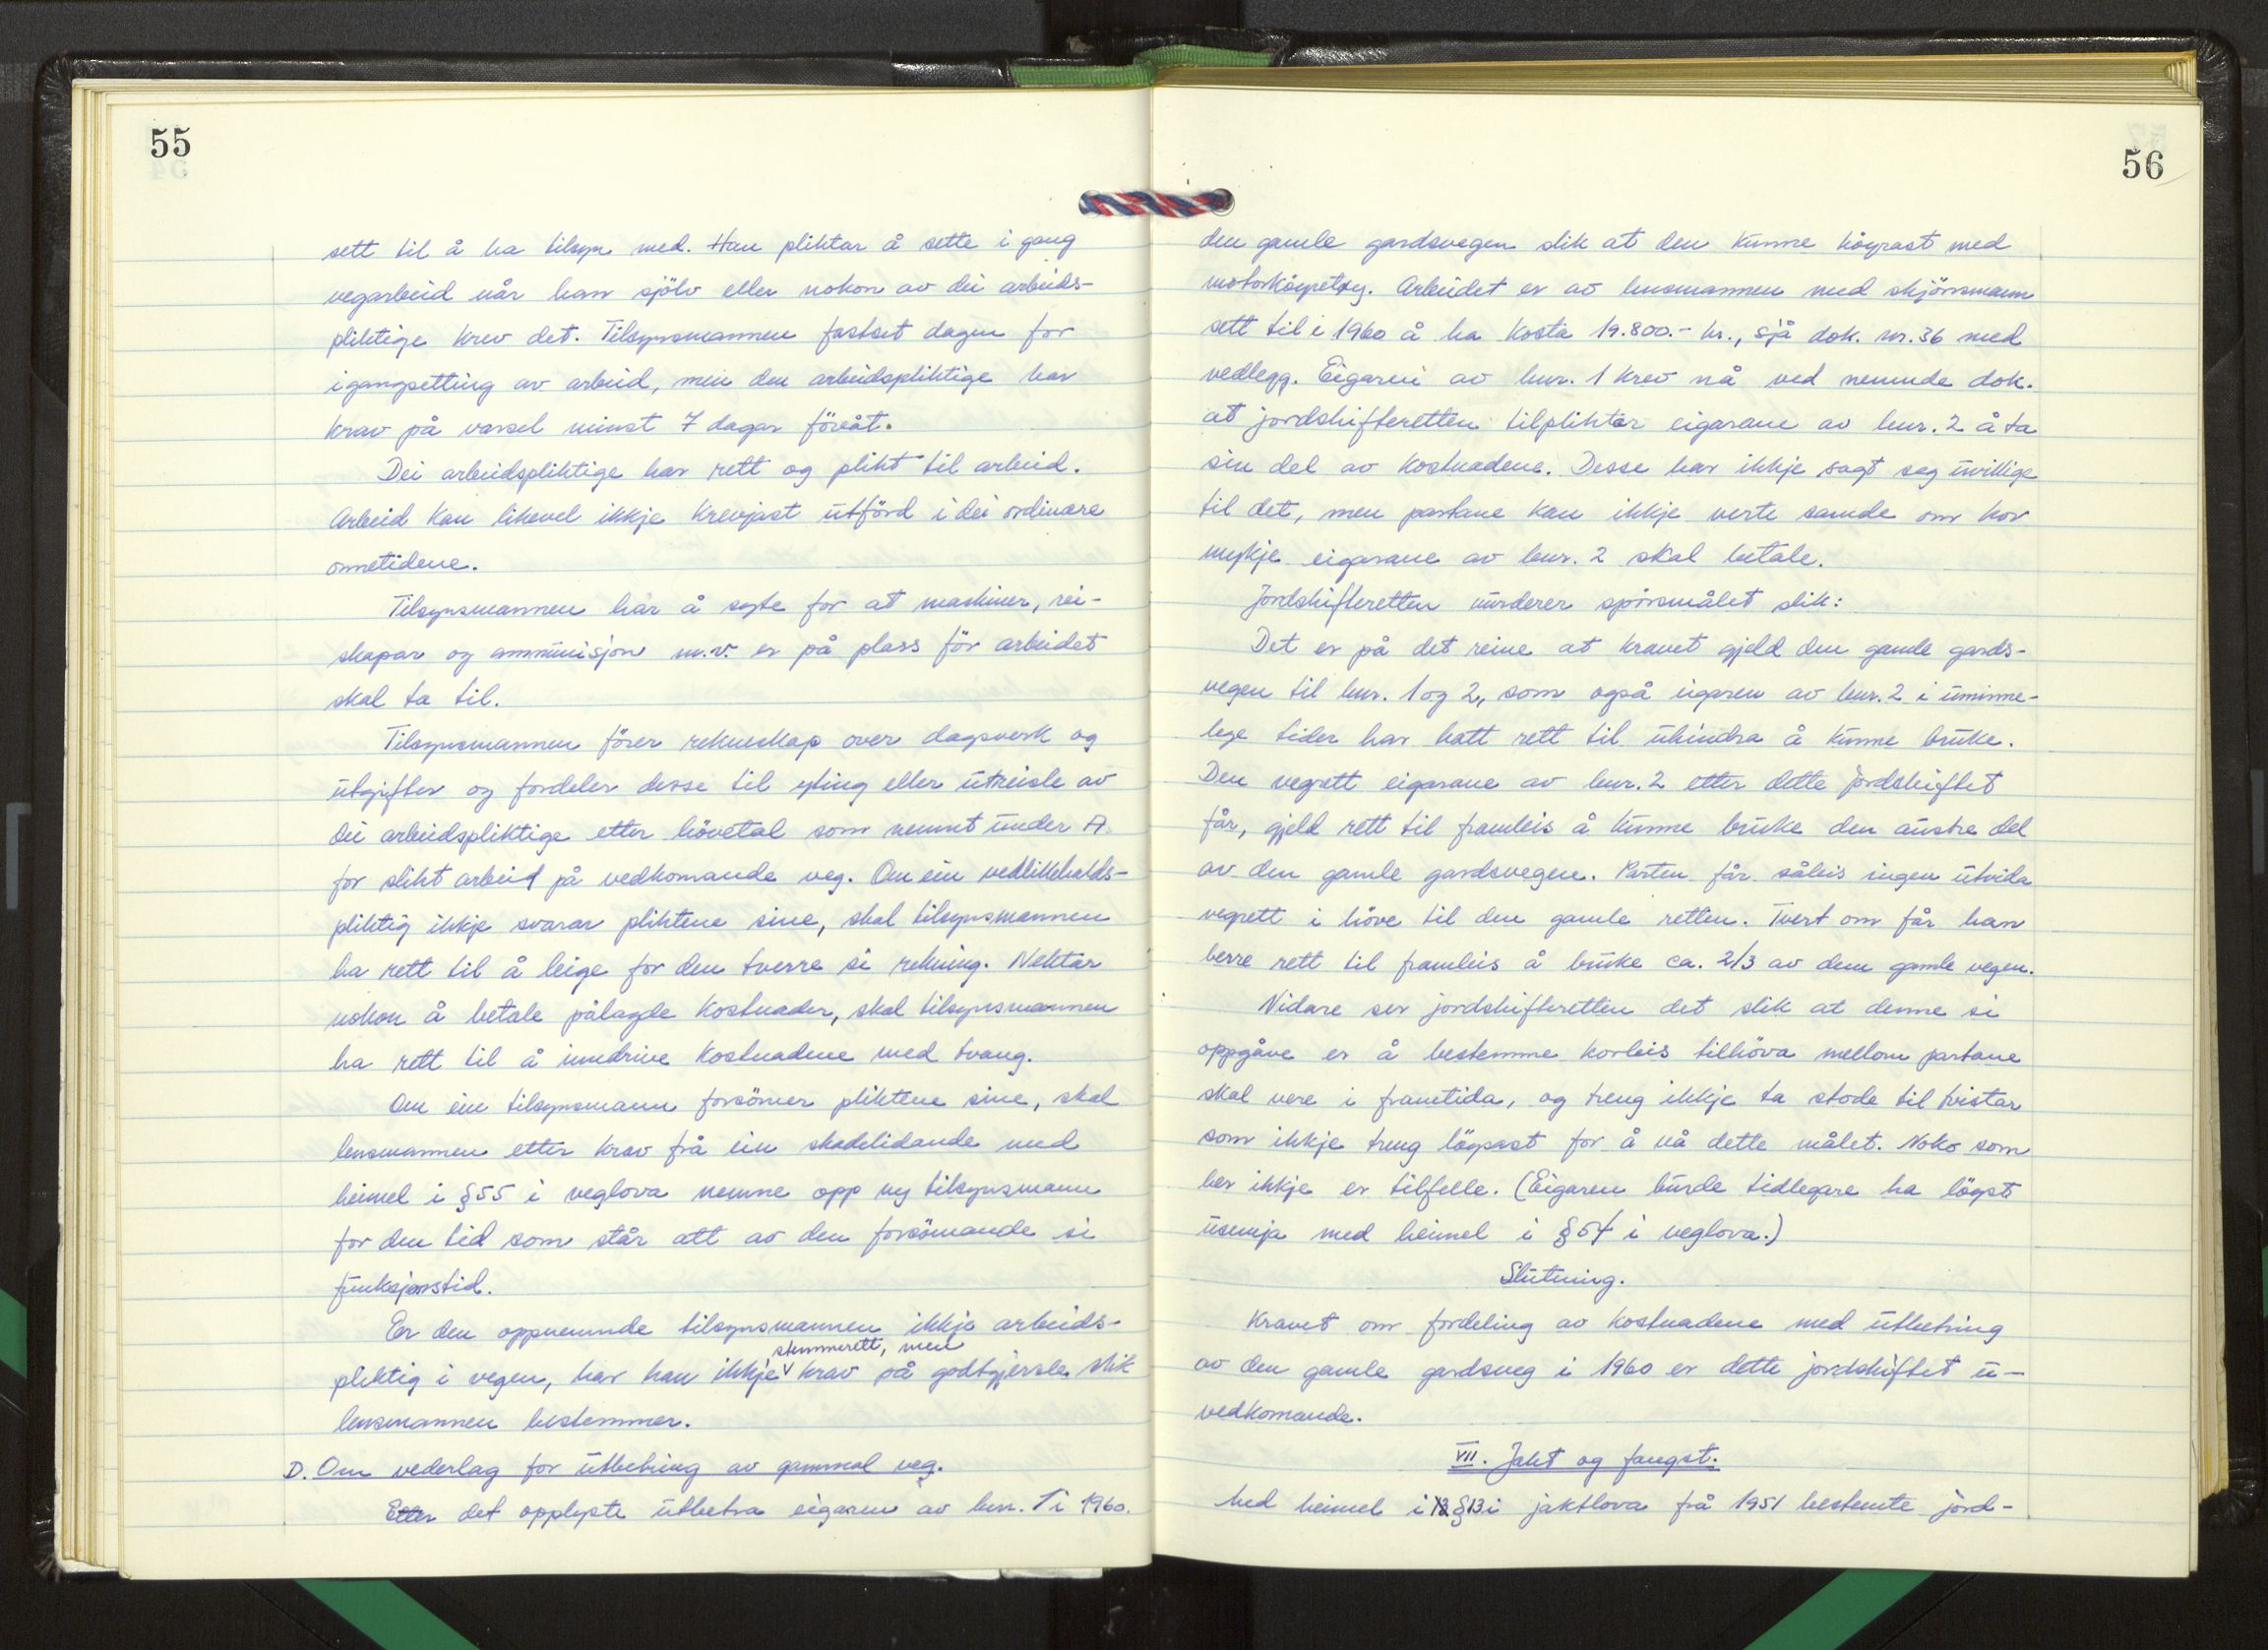 55
sett til å ha tilsyn med. Han pliktar å sette i gang
vegarbeid når han sjölv eller nokon av dei arbeids-
pliktige krev det. Tilsynsmannen fastset dagen for
igangsetting av arbeid, men den arbeidspliktige har
krav på varsel minst 7 dagar föreåt.
Dei arbeidspliktige har rett og plikt til arbeid.
Arbeid kan likevel ikkje krevjast utförd i dei ordinære
onnetidene.
Tilsynsmannen har å syte for at maskiner, rei-
skapar og ammunisjon m.v. er på plass för arbeidet
skal ta til.
Tilsynsmannen förer rekneskap over dagsverk og
utgifter og fordeler desse til yting eller utreisle av
dei arbeidspliktige etter hövetal som nemnt under A
for slikt arbeid på vedkomande veg. Om ein vedlikehalds-
pliktig ikkje svarar pliktene sine, skal tilsynsmannen
ha rett til å leige for den tverre si rekning. Nektar
nokon å betale pålagde kostnader, skal tilsynsmannen
ha rett til å inndrive kostnadene med tvang.
Om ein tilsynsmann forsömer pliktene sine, skal
lensmannen etter krav frå ein skadelidande med
heimel i §55 i veglova nemne opp ny tilsynsmann
for den tid som står att av den forsömande si
funksjonstid.
Er den oppnemnde tilsynsmannen ikkje arbeids-
stemmerett, men
pliktig i vegen, har han ikkje krav på godtgjersle slik
lensmannen bestemmer.
D. Om vederlag for utbetring av gammal veg.
Etter det opplyste utbetra eigaren av bnr. 1 i 1960.
56
den gamle gardsvegen slik at den kunne köyrast med
motorköyretøy. Arbeidet er av lensmannen med skjönsmenn
sett til i 1960 å ha kosta 19.800.- kr., sjå dok. nr. 36 med
vedlegg. Eigaren av bnr. 1 krev nå ved nemnde dok.
at jordskifteretten tilpliktar eigarane av bnr. 2 å ta
sin del av kostnadene. Desse har ikkje sagt seg uvillige
til det, men partane kan ikkje verte samde om kor
mykje eigarane av bnr. 2 skal betale.
Jordskifteretten vurderer spörsmålet slik:
Det er på det reine at kravet gjeld den gamle gards-
vegen til bnr. 1 og 2, som også eigaren av bnr. 2 i uminne-
lege tider har hatt rett til uhindra å kunne bruke.
Den vegrett eigarane av bnr. 2 etter dette jordskiftet
får, gjeld rett til framleis å kunne bruke den austre del
av den gamle gardsvegen. Parten får såleis ingen utvida
vegrett i höve til den gamle retten. Tvert om får han
berre rett til framleis å bruke ca. 2/3 av den gamle vegen.
Vidare ser jordskifteretten det slik at denne si
oppgåve er å bestemme korleis tilhöva mellom partane
skal vere i framtida, og treng ikkje ta stode til tvistar
som ikkje treng löysast for å nå dette målet. Noko som
her ikkje er tilfelle. (Eigaren burde tidlegare ha löyst
usemja med heimel i §54 i veglova.)
Slutning.
Kravet om fordeling av kostnadene med utbetring
av den gamle gardsveg i 1960 er dette jordskiftet u-
vedkomande.
VII. Jakt og fangst.
Med heimel i §13 i jaktlova frå 1951 bestemte jord-